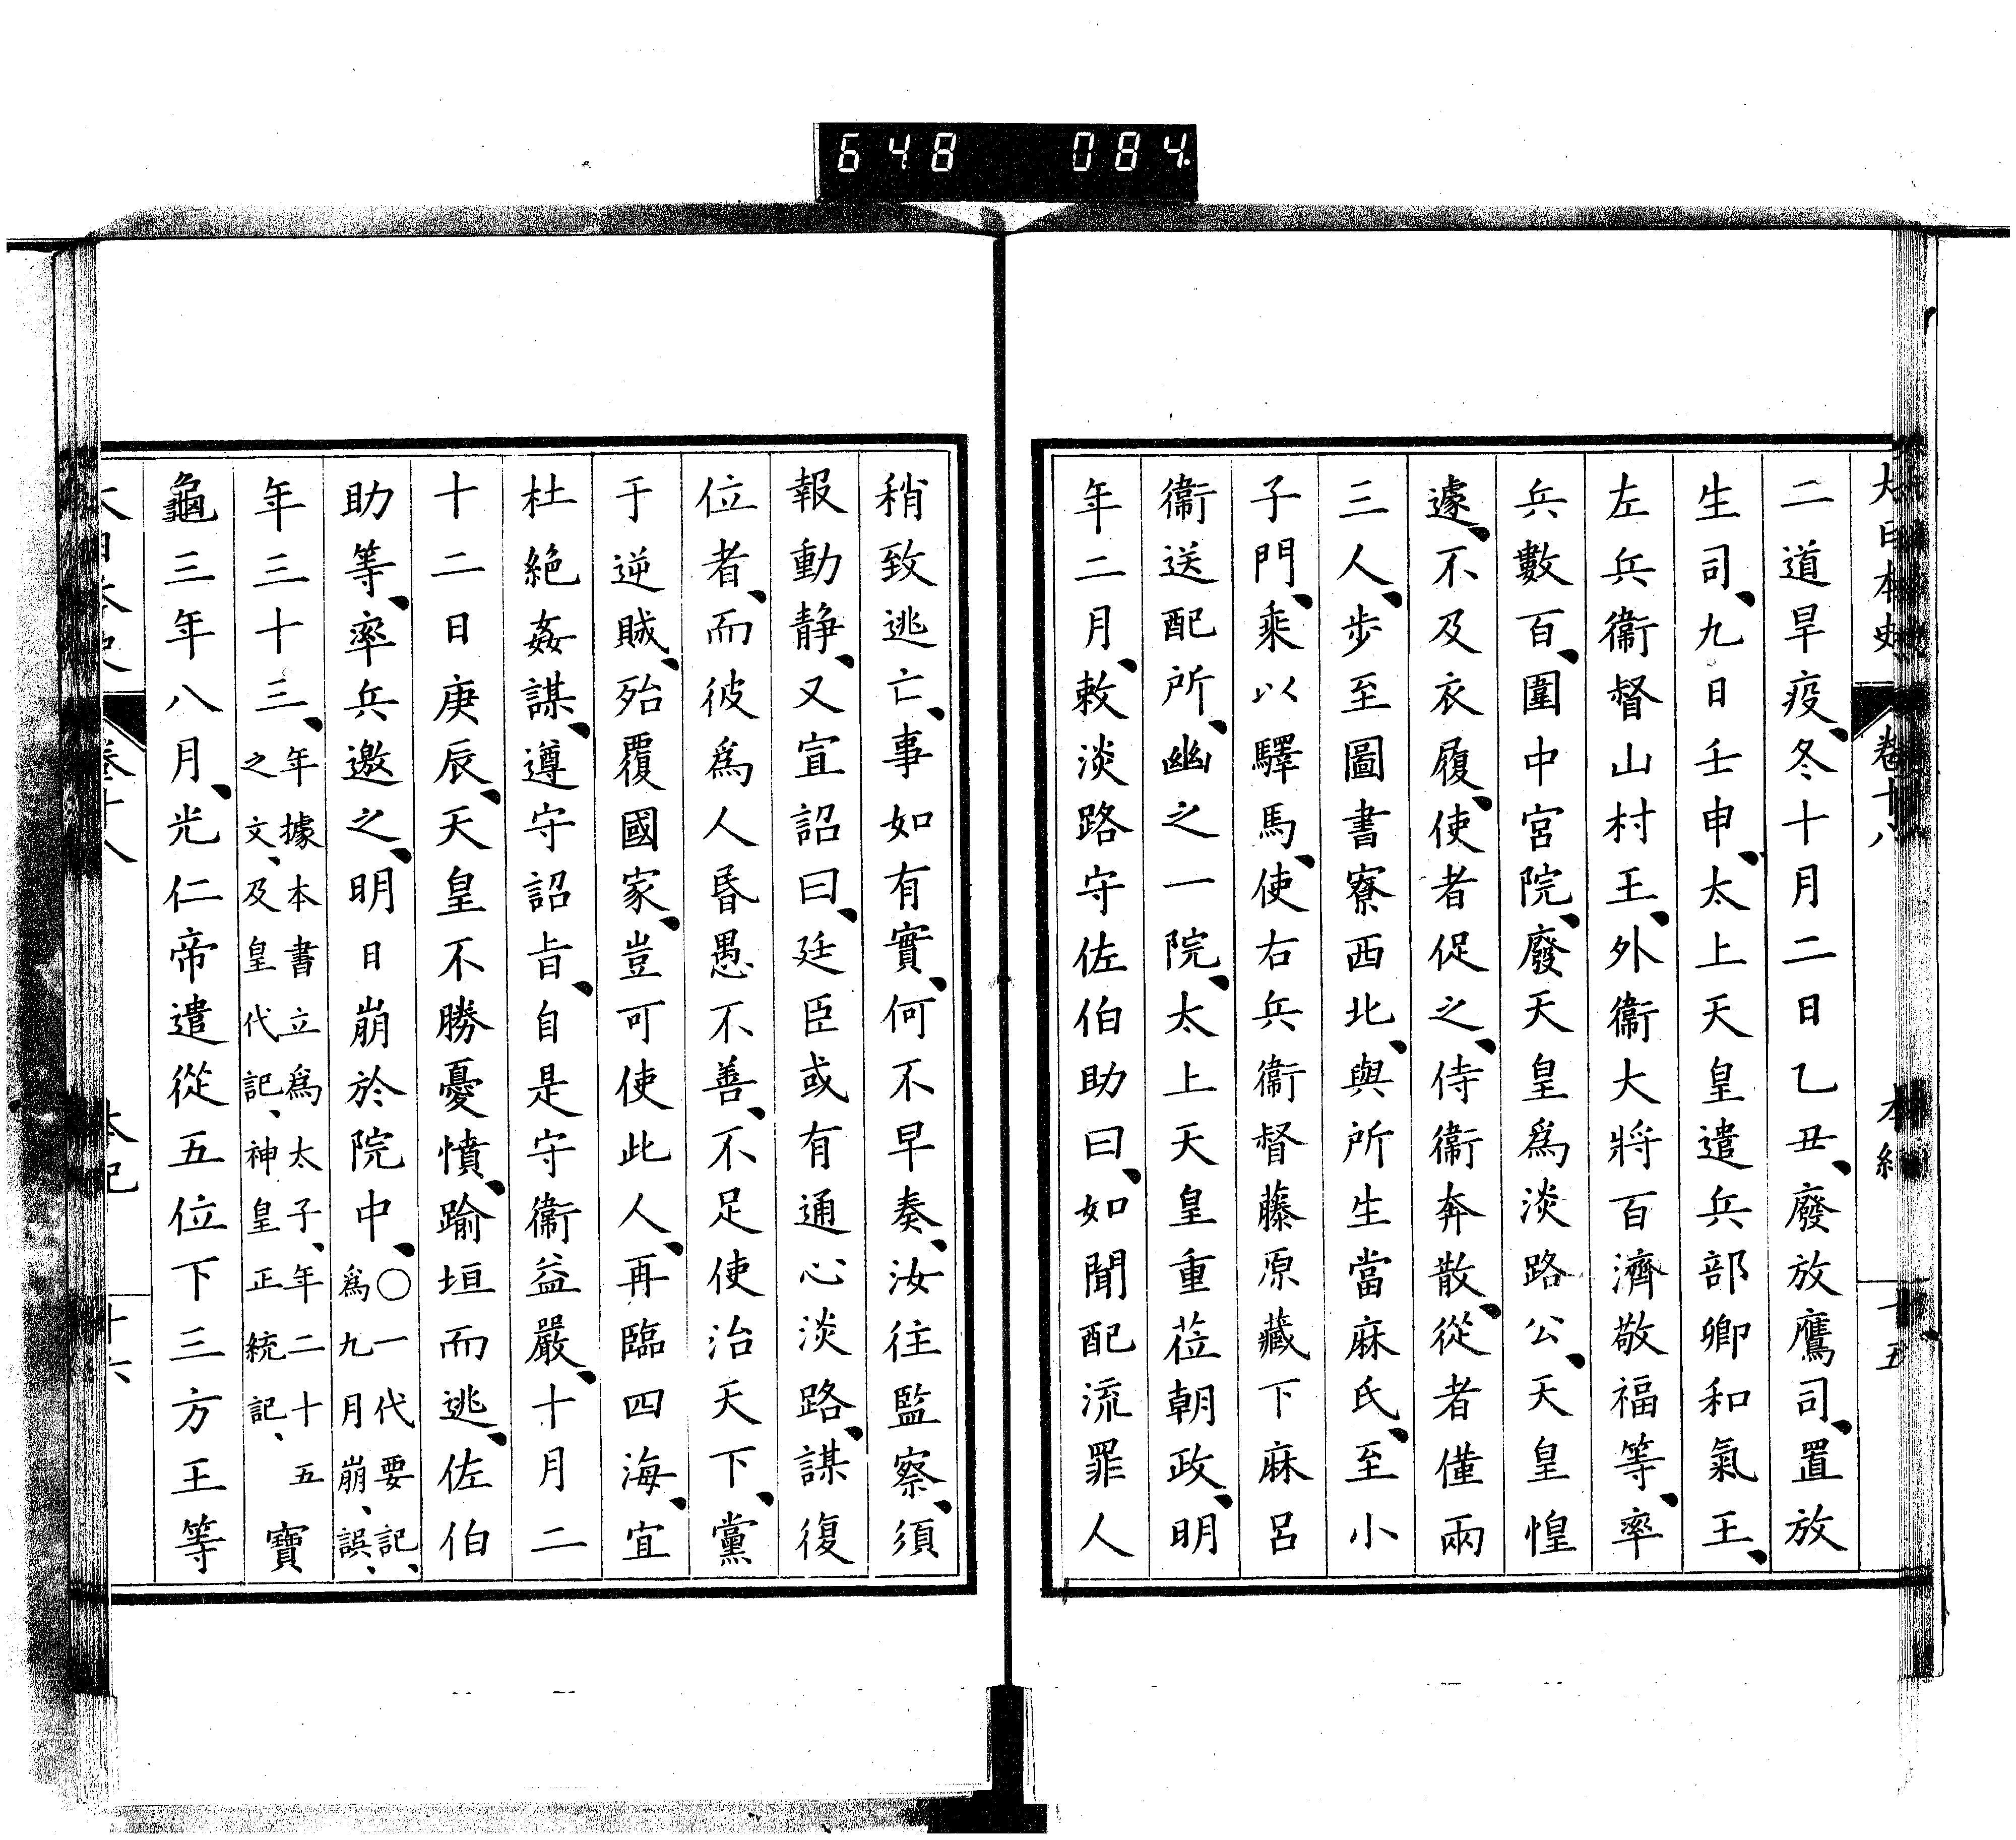 648 084
大日本史 卷十八 本紀 十五
二道旱疫、冬十月二日乙丑、廢放鷹司、置放
生司、九日壬申、太上天皇遣兵部卿和氣王、
左兵衞督山村王、外衞大將百濟敬福等、率
兵數百、圍中宮院、廢天皇爲淡路公、天皇惶
遽、不及衣履、使者促之、侍衞奔散、從者僅兩
三人、步至圖書寮西北、與所生當麻氏、至小
子門、乘以驛馬、使右兵衞督藤原藏下麻呂
衞送配所、幽之一院、太上天皇重莅朝政、明
年二月、敕淡路守佐伯助曰、如聞配流罪人
稍致逃亡、事如有實、何不早奏、汝往監察、須
報動靜、又宣詔曰、廷臣或有通心淡路、謀復
位者、而彼爲人昏愚不善、不足使治天下、黨
于逆賊、殆覆國家、豈可使此人、再臨四海、宜
杜絕姦謀、遵守詔旨、自是守衞益嚴、十月二
十二日庚辰、天皇不勝憂憤、踰垣而逃、佐伯
助等、率兵邀之、明日崩於院中、〇一代要記、爲九月崩、誤、
年三十三、年據本書立爲太子、年二十五之文、及皇代記、神皇正統記、寶
龜三年八月、光仁帝遣從五位下三方王等
大日本史 卷十八 本紀 十六